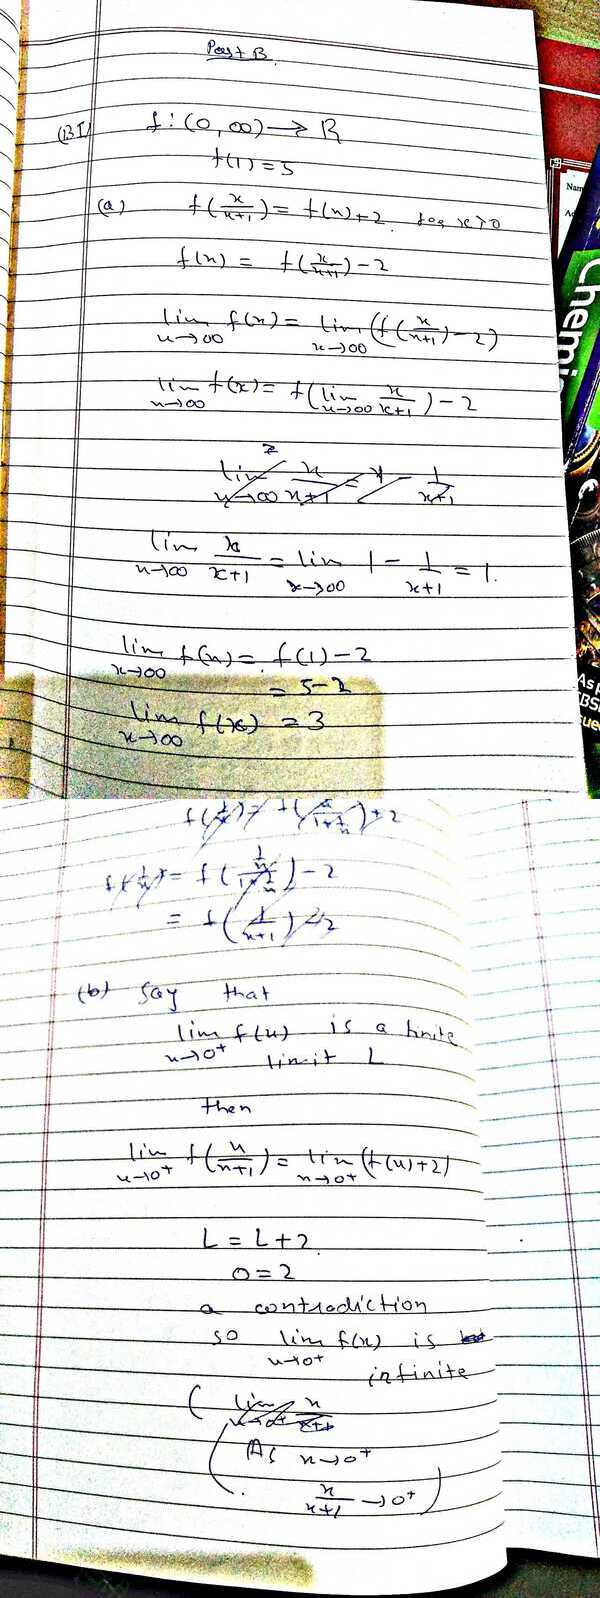 Part B
(B1) f : (0, ∞) → R
f(1) = 5
(a) f(x/(x+1)) = f(x) + 2 for x > 0
f(x) = f(x/(x+1)) - 2
lim x→∞ f(x) = lim x→∞ (f(x/(x+1)) - 2)
lim x→∞ f(x) = f(lim x→∞ x/(x+1)) - 2
lim x→∞ x/(x+1) = 1/(x+1)
lim x→∞ x/(x+1) = lim x→∞ 1 - 1/(x+1) = 1.
lim x→∞ f(x) = f(1) - 2
= 5 - 2
lim x→∞ f(x) = 3
= f( ) - 2
= f(1/(x+1)) - 2
(b) Say that
lim x→0+ f(x) is a finite
limit L
then
lim x→0+ f(x/(x+1)) = lim x→0+ (f(x) + 2)
L = L + 2
0 = 2
a contradiction
so lim x→0+ f(x) is
infinite
( lim x→0+ x/(x+1)
(As x→0+
x/(x+1) → 0+ )
Chemi
Nam
As p